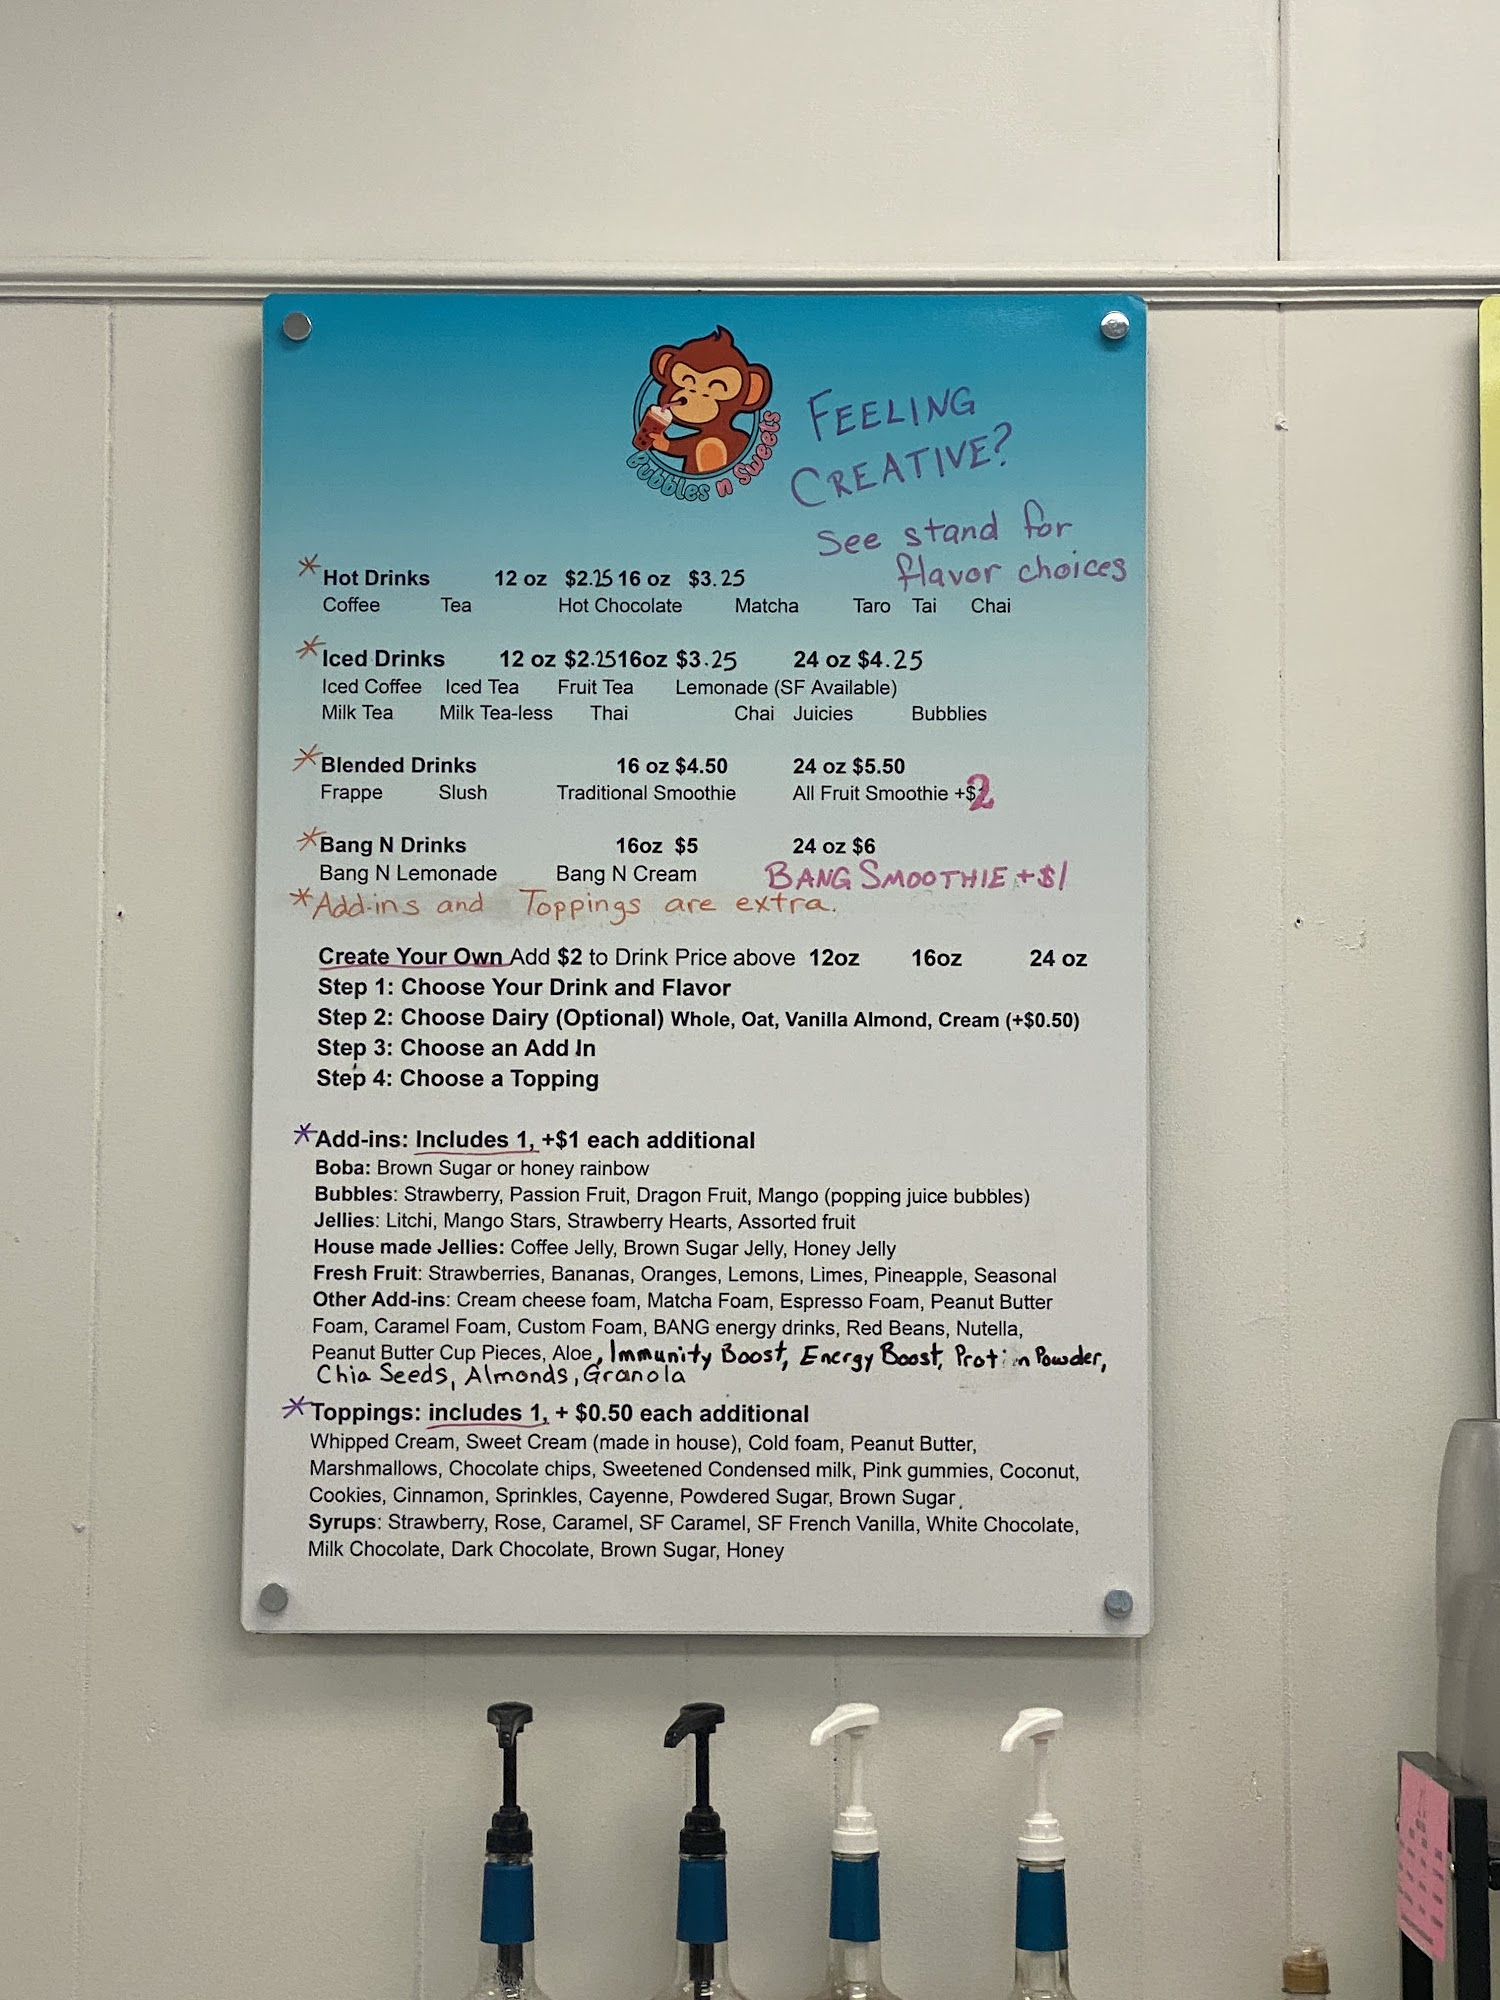 Bubbles n Sweets
FEELING
CREATIVE?
See stand for
flavor choices
*Hot Drinks 12 oz $2.25 16 oz $3.25
Coffee Tea Hot Chocolate Matcha Taro Tai Chai
*Iced Drinks 12 oz $2.25 16oz $3.25 24 oz $4.25
Iced Coffee Iced Tea Fruit Tea Lemonade (SF Available)
Milk Tea Milk Tea-less Thai Chai Juicies Bubblies
*Blended Drinks 16 oz $4.50 24 oz $5.50
Frappe Slush Traditional Smoothie All Fruit Smoothie +$2
*Bang N Drinks 16oz $5 24 oz $6
Bang N Lemonade Bang N Cream BANG SMOOTHIE +$1
*Add-ins and Toppings are extra.
Create Your Own Add $2 to Drink Price above 12oz 16oz 24 oz
Step 1: Choose Your Drink and Flavor
Step 2: Choose Dairy (Optional) Whole, Oat, Vanilla Almond, Cream (+$0.50)
Step 3: Choose an Add In
Step 4: Choose a Topping
*Add-ins: Includes 1, +$1 each additional
Boba: Brown Sugar or honey rainbow
Bubbles: Strawberry, Passion Fruit, Dragon Fruit, Mango (popping juice bubbles)
Jellies: Litchi, Mango Stars, Strawberry Hearts, Assorted fruit
House made Jellies: Coffee Jelly, Brown Sugar Jelly, Honey Jelly
Fresh Fruit: Strawberries, Bananas, Oranges, Lemons, Limes, Pineapple, Seasonal
Other Add-ins: Cream cheese foam, Matcha Foam, Espresso Foam, Peanut Butter
Foam, Caramel Foam, Custom Foam, BANG energy drinks, Red Beans, Nutella,
Peanut Butter Cup Pieces, Aloe, Immunity Boost, Energy Boost, Protien Powder,
Chia Seeds, Almonds, Granola
*Toppings: includes 1, + $0.50 each additional
Whipped Cream, Sweet Cream (made in house), Cold foam, Peanut Butter,
Marshmallows, Chocolate chips, Sweetened Condensed milk, Pink gummies, Coconut,
Cookies, Cinnamon, Sprinkles, Cayenne, Powdered Sugar, Brown Sugar.
Syrups: Strawberry, Rose, Caramel, SF Caramel, SF French Vanilla, White Chocolate,
Milk Chocolate, Dark Chocolate, Brown Sugar, Honey